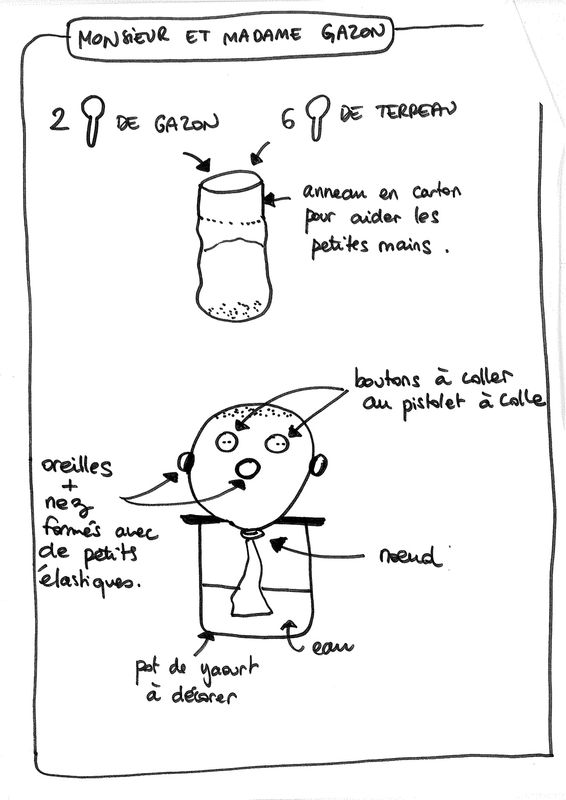 MONSIEUR ET MADAME GAZON
2 DE GAZON
6 DE TERREAU
anneau en carton
pour aider les
petites mains.
boutons à coller
au pistolet à colle
oreilles
+
nez
formés avec
de petits
élastiques.
noeud
eau
pot de yaourt
à décorer